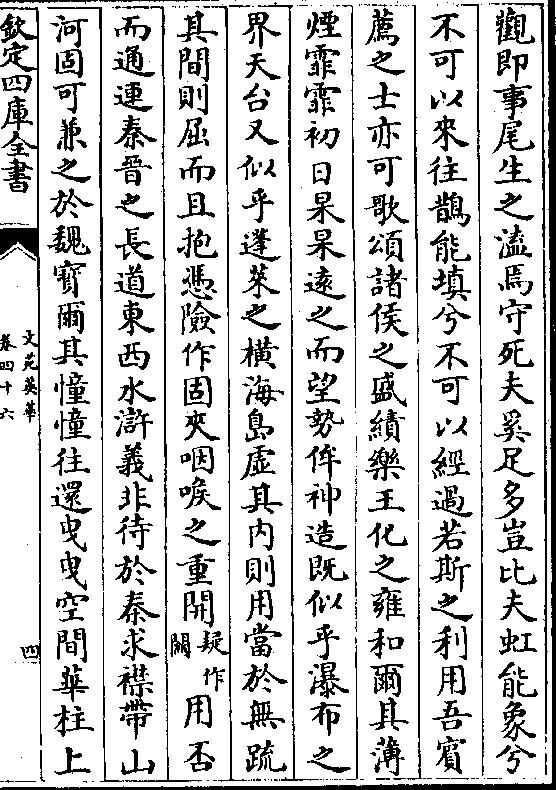 觀即事尾生之溘焉守死夫奚足多豈比夫虹能象兮
不可以來往鵲能填兮不可以經過若斯之利用吾賓
薦之士亦可歌頌諸侯之盛績樂王化之雍和爾其薄
煙霏霏初日杲杲遠之而望勢侔神造既似乎瀑布之
界天台又似乎蓬萊之橫海島虛其内則用當於無疏
其間則屈而且抱憑險作固夾咽喉之重開疑作關用否
而通連秦晉之長道東西水滸義非待於秦求襟帶山
河固可兼之於魏寳爾其憧憧往還曳曳空間華柱上
欽定四庫全書
文苑英華
卷四十六
四